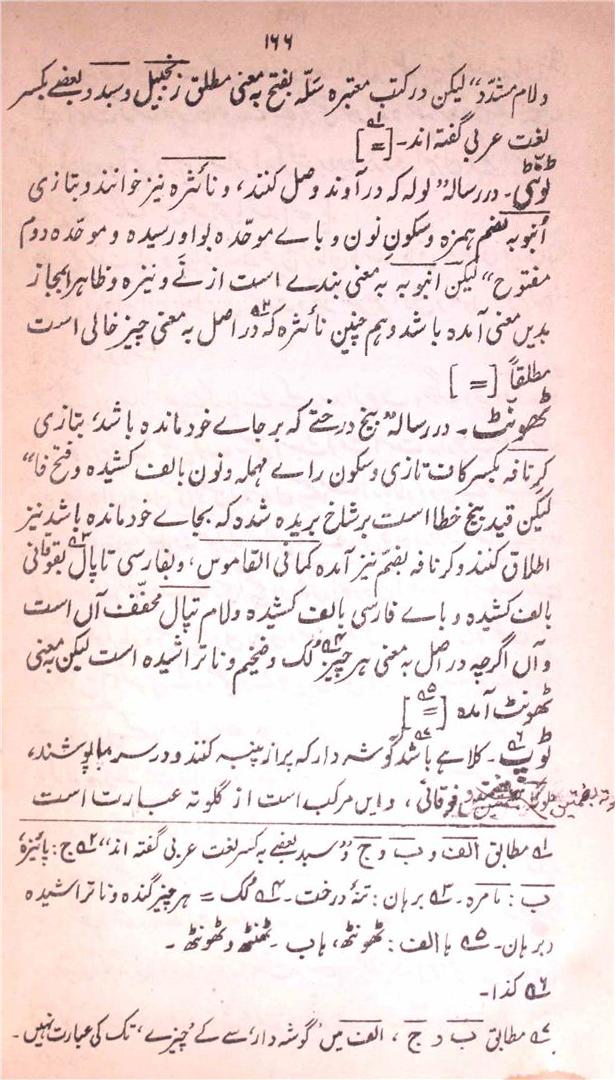 ۱۶۶
و لام مشدّد" لیکن در کتب معتبره سَلّه بفتح به معنی مطلق زنجبیل و سبد و بعضے بکسر
لغت عربی گفته اند۔ [=]۱
ٹوٹی۔ در رساله "لوله که در آوند وصل کنند، و نائژه نیز خوانند و بتازی
اُنبوبه بضم همزه و سکونِ نون و باے موحّده بواو رسیده و موحّده دوم
مفتوح" لیکن انبوبه به معنی بندے است از نَے و نیزه و ظاهرا بمجاز
بدیں معنی آمده باشد و هم چنین نائژه۲ که در اصل به معنی چیز خالی است
مطلقاً [=]
ٹھونٹ۔ در رساله "بیخ درختے که بر جاے خود مانده باشد، بتازی
کِرنافه بکسر کاف تازی و سکون راے مهمله و نون بالف کشیده و فتح فا"
لیکن قید بیخ خطا است بر شاخ بریده شده که بجاے خود مانده باشد نیز
اطلاق کنند و کرنافه بضمّ نیز آمده کما فی القاموس، و بفارسی تاپال۳ بفوقانی
بالف کشیده و باے فارسی بالف کشیده و لام تپال مخفّف آں است
و آں اگرچه در اصل به معنی هر چیز لُک۴ و ضخیم و ناتراشیده است لیکن به معنی
ٹھونٹ آمده [=]۵
ٹوپ۶۔ کلاهے باشد گوشه دار۷ که پر از پنبه کنند و در سرما پوشند،
فوقانی، و ایں مرکب است از گلوته عبارت است
۱ مطابق الف و ب و ج "و سبد بعضے به کسر لغت عربی گفته اند" ۲ ج: پائیزه
ب: نامره۔ ۳ برہان: تنۂ درخت۔ ۴ لُک = هر چیز گنده و ناتراشیده
برہان۔ ۵ با الف: ٹھونٹھ، باب ۔ ٹھنٹھ و ٹھونٹھ ۔
۶ کذا۔
۷ مطابق ب و ج ، الف میں 'گوشه دار' سے کے 'چیزے' تک کی عبارت نہیں۔